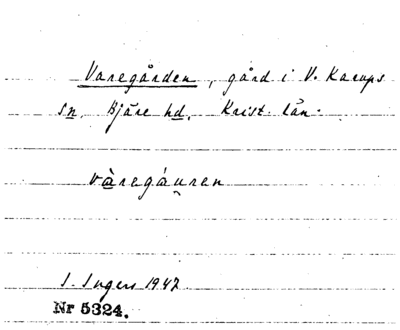 Varegården, gård i V. Karups
sn, Bjäre hd, Krist. län.
vàregáuren
I. Ingers 1942
Nr 5324.